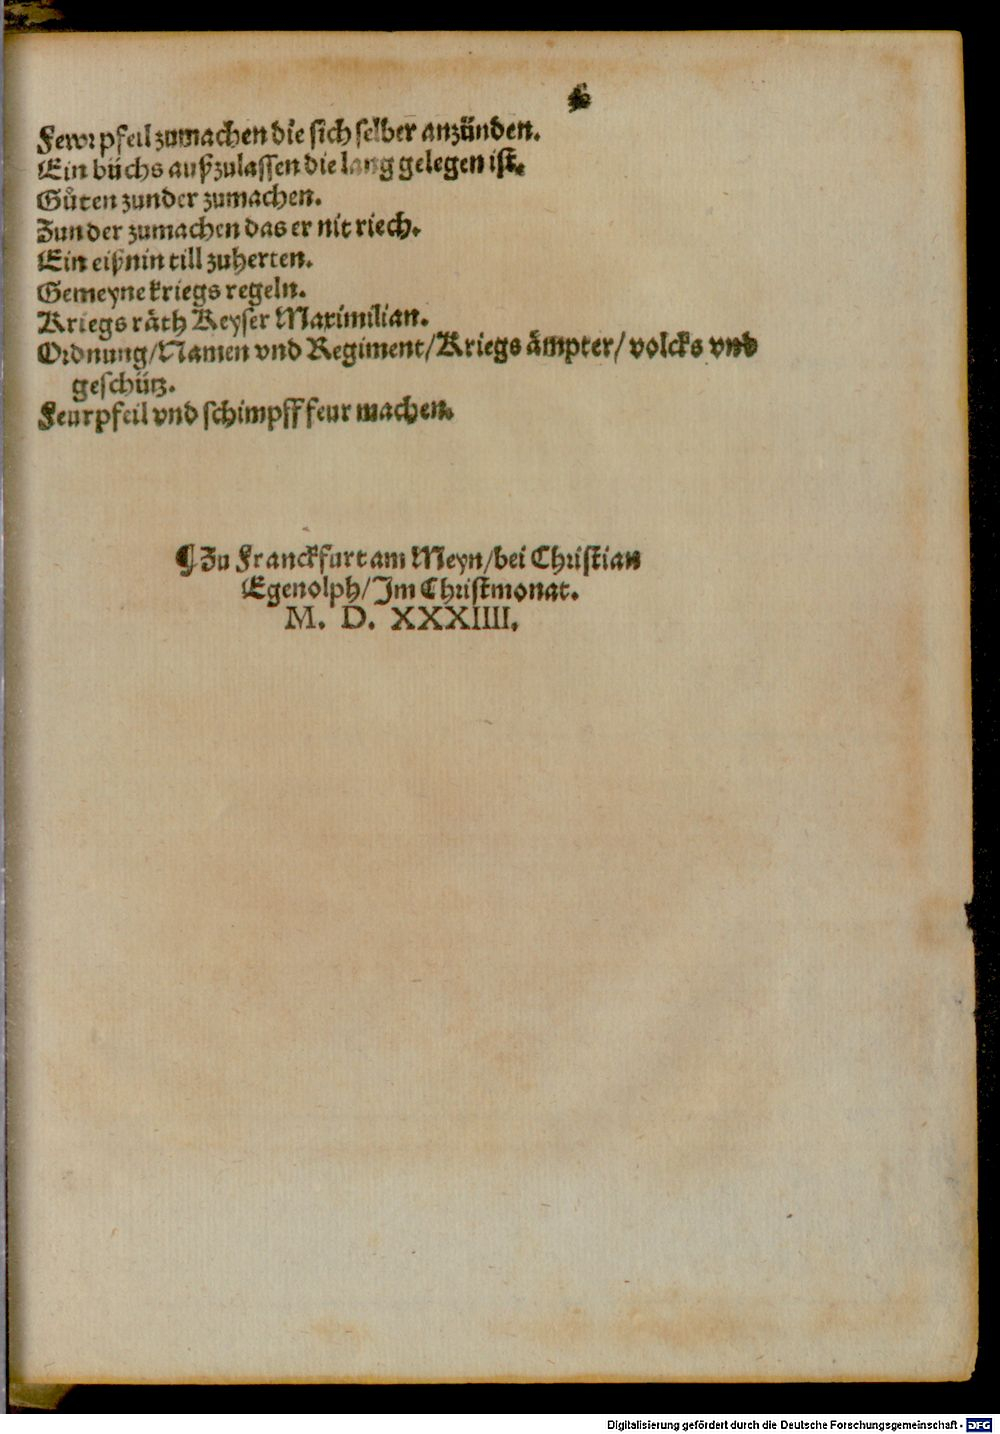 Fewrpfeil zumachen die sich selber anzünden.
Ein büchs außzulassen die lang gelegen ist.
Gůten zunder zumachen.
Zunder zumachen das er nit riech.
Ein eißnin till zuherten.
Gemeyne kriegs regeln.
Kriegs räth Keyser Maximilian.
Ordnung/Namen vnd Regiment/Kriegs ämpter/ volcks vnd
geschütz.
Feurpfeil vnd schimpff feur machen.
¶ Zu Franckfurt am Meyn/bei Christian
Egenolph/Im Christmonat.
M. D. XXXIIII.
Digitalisierung gefördert durch die Deutsche Forschungsgemeinschaft - DFG